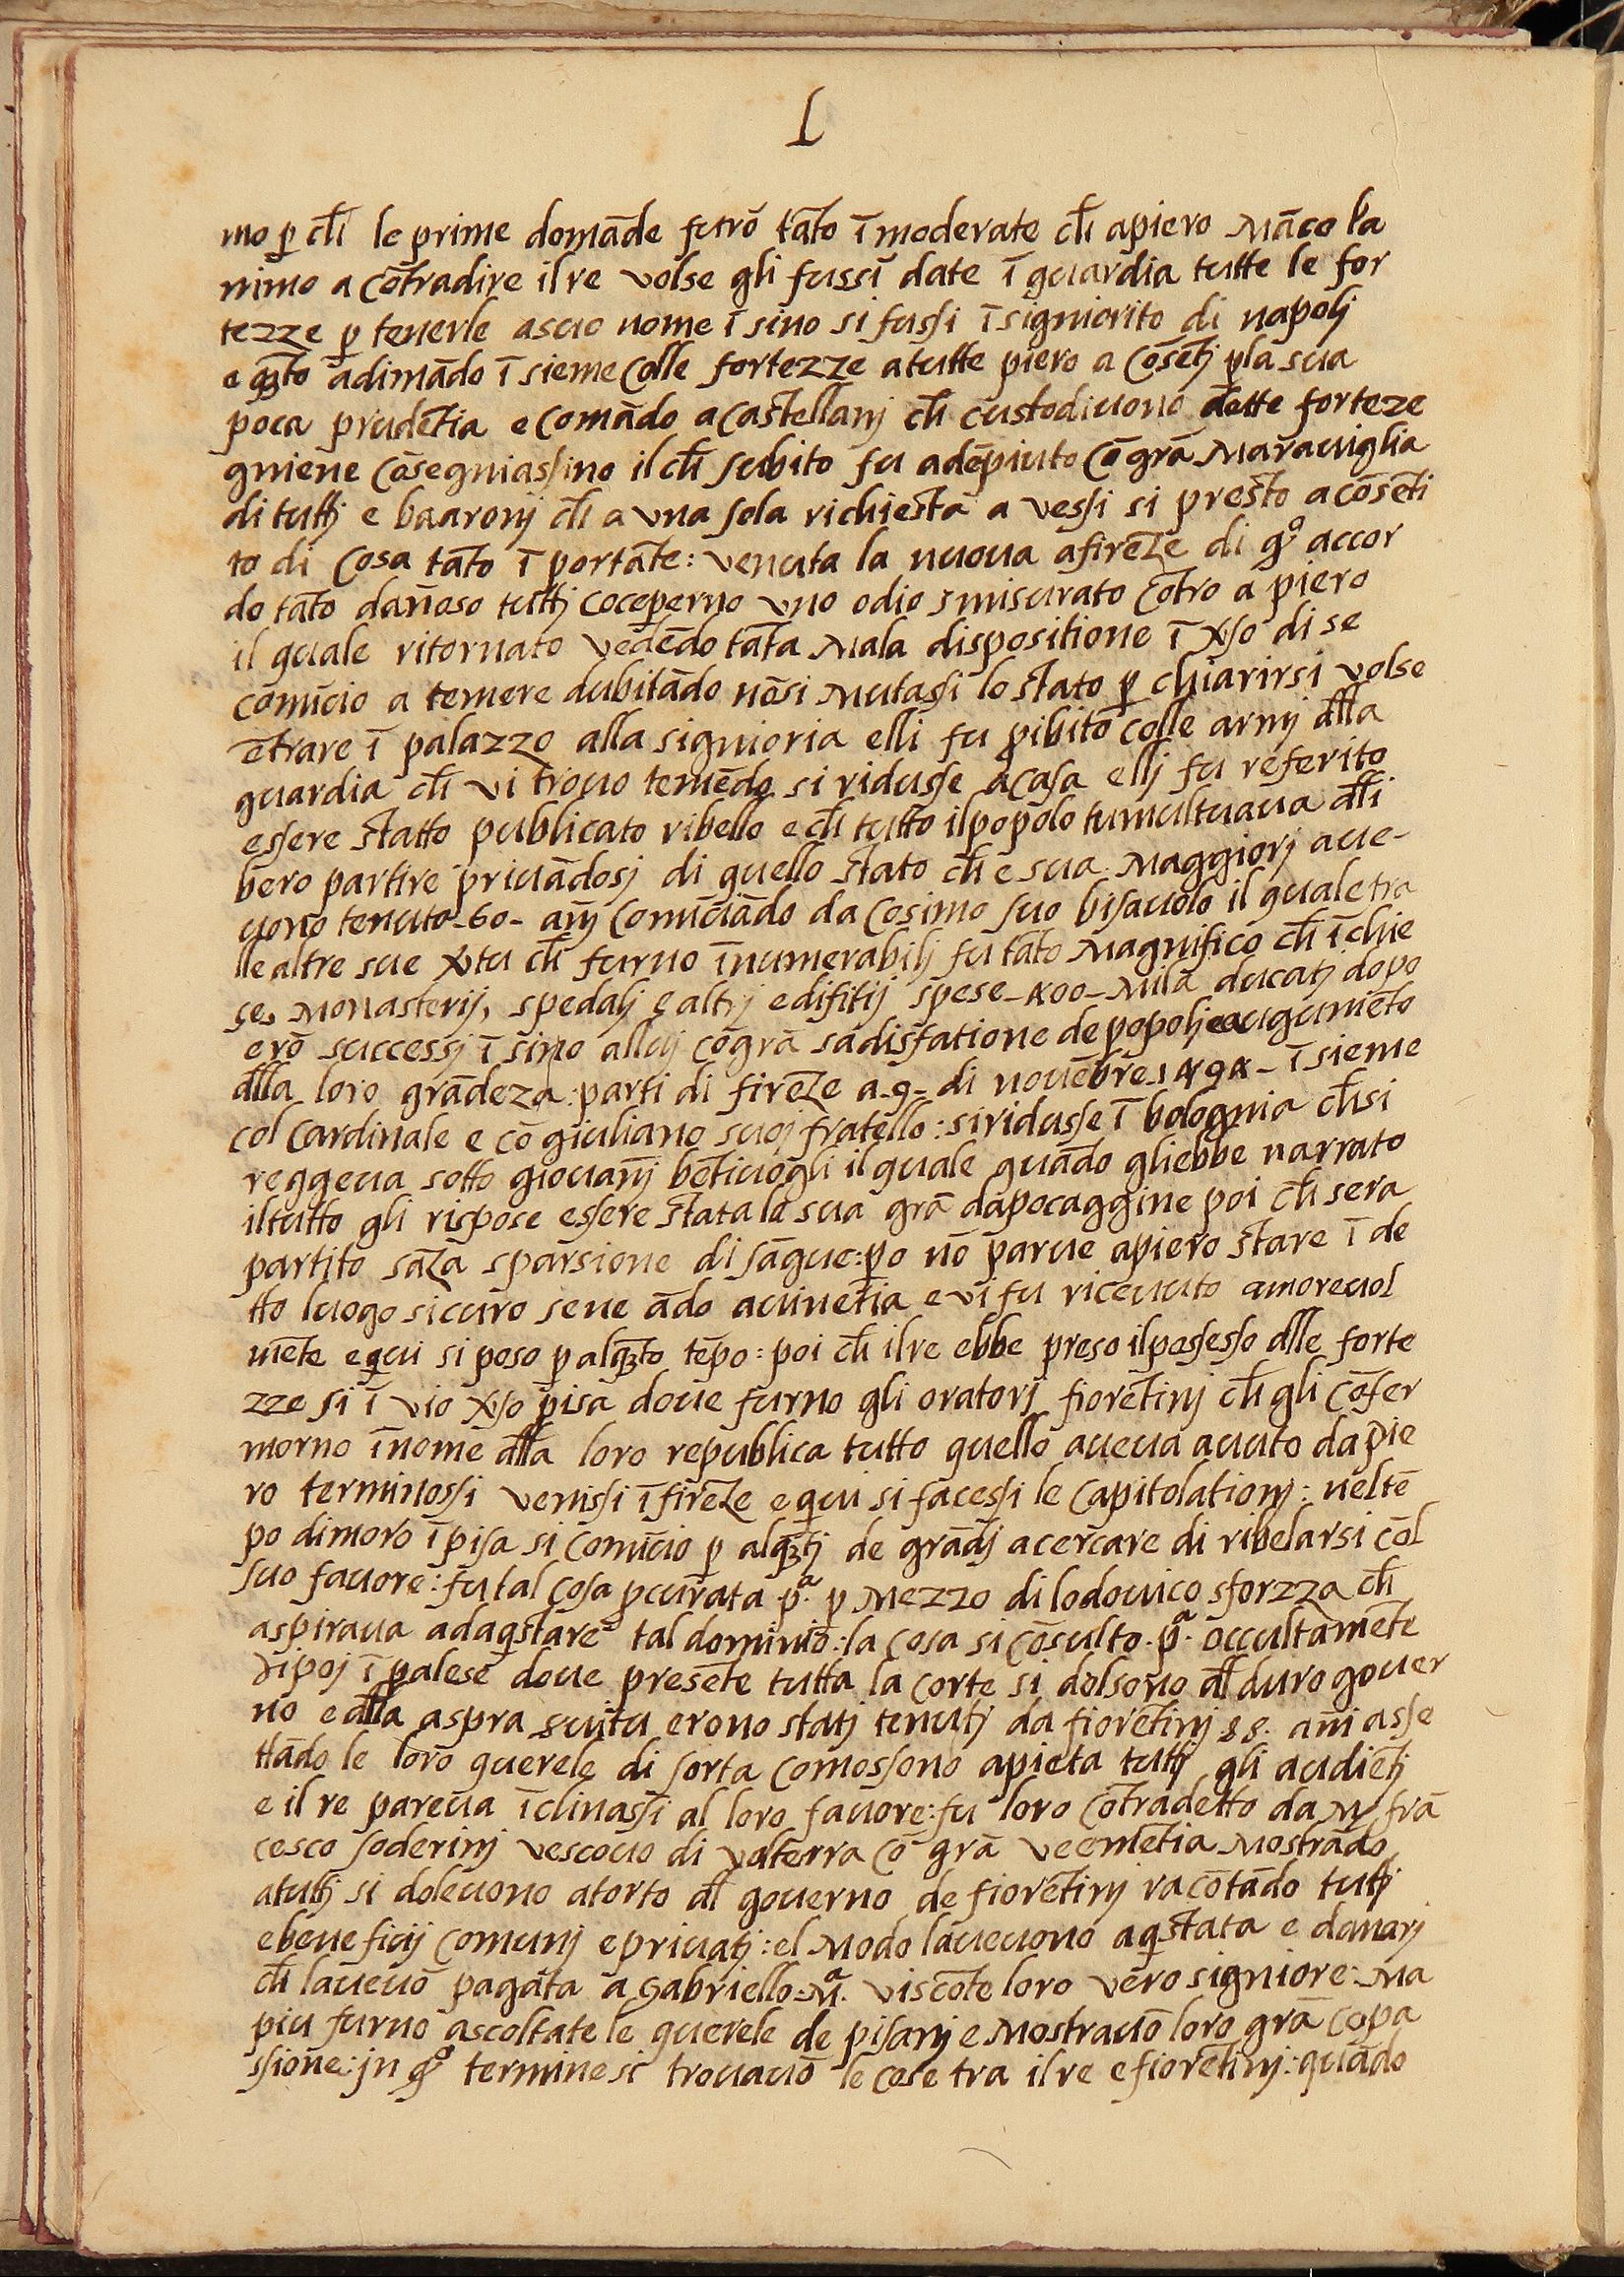 L
mo ꝑ ch̄ le prime domāde furō tāto ī moderate ch̄ apiero Māco la
nimo a cōtradire il re volse gli fussī date ī guardia tutte le for
tezze ꝑ tenerle asuo nome ī sino si fussi ī signiorito di napolj
e q̄to adimādo ī sieme colle fortezze atutte piero a cōsētj ꝑla sua
poca prudētia e comādo acastellanj ch̄ custodiuono dette forteze
gniene cōsegniassino il ch̄ subito fu adēpiuto cō grā Marauiglia
di tuttj e baaronj ch̄ a vna sola richiesta a vessi si presto acōsēti
to di cosa tāto ī portāte: venuta la nuoua afirēze di qº accor
do tāto dan̄oso tuttj coceperno vno odio smisurato cōtro a piero
il quale ritornato vedēdo tāta Mala dispositione ī v̸so di se
comīcio a temere dubitādo nōsi Mutassi lo stato ꝑ chiarirsi volse
ētrare ī palazzo alla signioria elli fu ꝓibito colle armj dlla
guardia ch̄ vi trouo temēdo si ridusse acasa ellj fu referito
essere statto publicato ribello e ch̄ tutto ilpopolo tumultuaua dlli
bero partire priuādosj di quello stato ch̄ e sua Maggiorj aue-
uono tenuto-60- an̄j comīciādo da cosimo suo bisauolo il quale tra
lle altre sue v̸tu ch̄ furno īnumerabilj fu tāto Magnifico ch̄ ī chie
se, Monasterij, spedalj e altrj edifitij spese-400-Mila ducatj dopo
erō successj ī sino alluj cō grā sadisfatione de popolj e augumēto
dlla loro grādeza: parti di firēze a-9- di nouēbre 1494- ī sieme
col cardinale e cō giuliano suoj fratello: siridusse ī bolognia ch̄si
reggeua sotto giouan̄j bētiuogli il quale quādo gliebbe narrato
iltutto gli rispose essere stata la sua grā dapocaggine poi ch̄ sera
partito sāza sparsione di sāgue: ꝑo nō parue apiero stare ī de
tto luogo sicuro sene ādo auinetia e vi fu riceuuto amoreuol
mēte e qui si poso ꝑ alq̄to tēpo: poi ch̄ il re ebbe preso ilpossesso dlle forte
zze si ī vio v̸so pisa doue furno gli oratorj fiorētinj ch̄ gli cōfer
morno īnome dlla loro republica tutto quello aueua auuto da pie
ro terminossi venissi ī firēze e qui si facessi le capitolationj: nel tē
po dimoro ī pisa si comīcio ꝑ alq̄tj de grādj acercare di ribelarsi cōl
suo fauore: fu tal cosa ꝓcurata .pª. ꝑ Mezzo di lodouico sforzza ch̄
aspiraua adaqstare tal dominio: la cosa si cōsulto .pª. occultamēte
dipoj ī palese doue presēte tutta la corte si dolsono dl duro gouer
no e dlla aspra suitu erono statj tenutj da fiorētinj 88. an̄i asse
ttādo le loro querele di sorta comossono apieta tuttj gli audiētj
e il re pareua īclinassi al loro fauore: fu loro cōtradetto da M frā
cesco soderinj vescouo di volterra cō grā veemētia Mostrādo
atuttj si doleuono atorto dl gouerno de fiorētinj racōtādo tuttj
e beneficij comunj e priuatj: el Modo laueuono aqstata e danarj
ch̄ laueuō pagata a Gabriello .Mª. viscōte loro vero signiore: Ma
piu furno ascoltate le querele de pisanj e Mostrauō loro grā cōpa
ssione: jn qº termine si trouauō le cose tra il re e fiorētinj: quādo